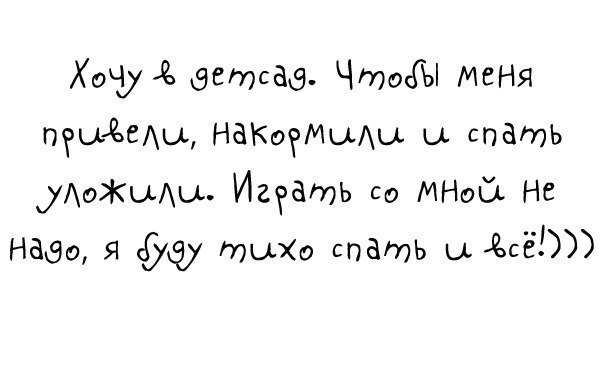 Хочу в детсад. Чтобы меня
привели, накормили и спать
уложили. Играть со мной не
надо, я буду тихо спать и всё!)))